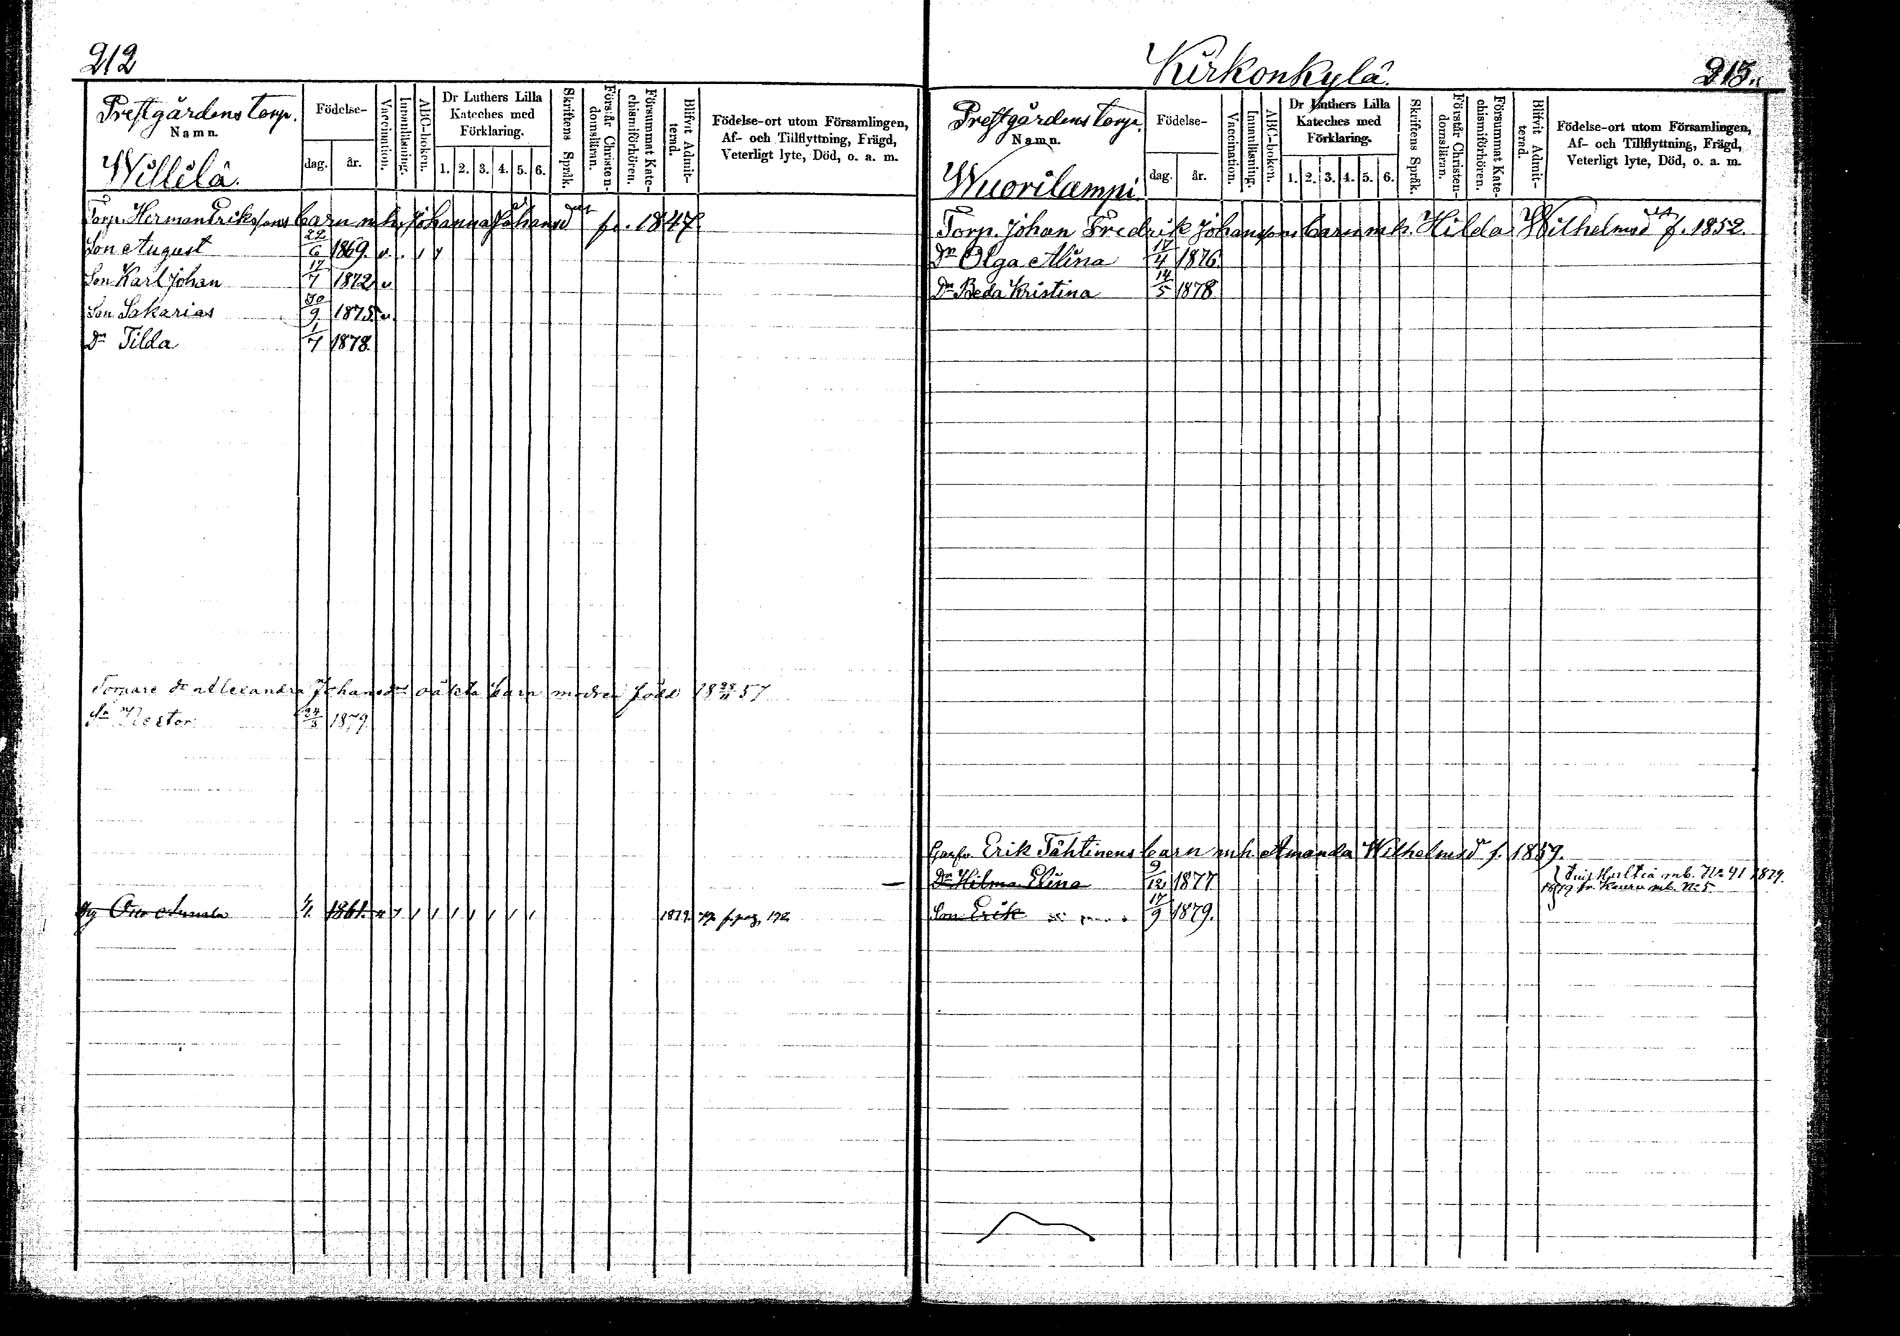 212
Prestgårdens torp.
Namn.
Willilä.
Födelse-
dag.
år.
Vaccination.
Innanläsning.
ABC-boken.
Dr Luthers Lilla
Kateches med
Förklaring.
1. 2. 3. 4. 5. 6.
Skriftens Språk.
Förstår Christen-
domsläran.
Försummat Kate-
chismiförhören.
Blifvit Admit-
terad.
Födelse-ort utom Församlingen,
Af- och Tillflyttning, Frägd,
Veterligt lyte, Död, o. a. m.
Torp. Herman Erikssons barn m.h. Johanna Johansdr f. 1847.
Son August 22/6 1869. v. . 1
Son Karl Johan 17/7 1872 v
Son Sakarias 30/9 1875. v.
Dr Tilda 1/7 1878.
Alexandra Johansdrs oäkta barn modren född 18 57
Sn Nestor 24/3 1879.
1861. 1 1 1 1 1 1 1 1879. fr. pag. 172
Kirkonkylä.
213.
Prestgårdens torp.
Namn.
Wuorilampi
Födelse-
dag.
år.
Vaccination.
Innanläsning.
ABC-boken.
Dr Luthers Lilla
Kateches med
Förklaring.
1. 2. 3. 4. 5. 6.
Skriftens Språk.
Förstår Christen-
domsläran.
Försummat Kate-
chismiförhören.
Blifvit Admit-
terad.
Födelse-ort utom Församlingen,
Af- och Tillflyttning, Frägd,
Veterligt lyte, Död, o. a. m.
Torp. Johan Fredrik Johanssons barn m.h. Hilda Wilhelmsdr f. 1852.
Dr Olga Alina 17/4 1876.
Dr Beda Kristina 14/5 1878
Erik Tähtinens barn m.h. Amanda Wilhelmsdr f. 1859.
Dr Hilma Elina 9/12 1877
mb. No 41 1879.
1879 fr. mb. No 5
Son Erik 17/9 1879.